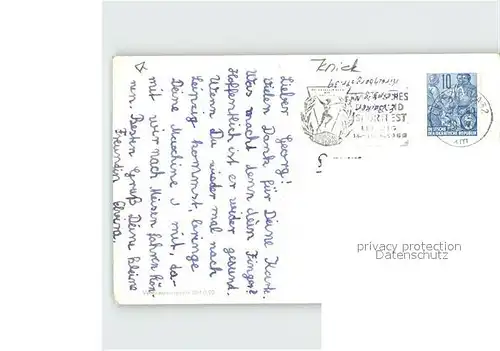 Knick
Lieber Georg!
Vielen Dank für Deine Karte.
Was macht denn dein Finger?
Hoffentlich ist er wieder gesund.
Wenn Du wieder mal nach
Leipzig kommst, bringe
Deine Maschine mit, da-
mit wir nach Meisen fahren kön-
nen. Besten Gruß Deine kleine
Freundin
10
DEUTSCHE
DEMOKRATISCHE REPUBLIK
privacy protection
Datenschutz